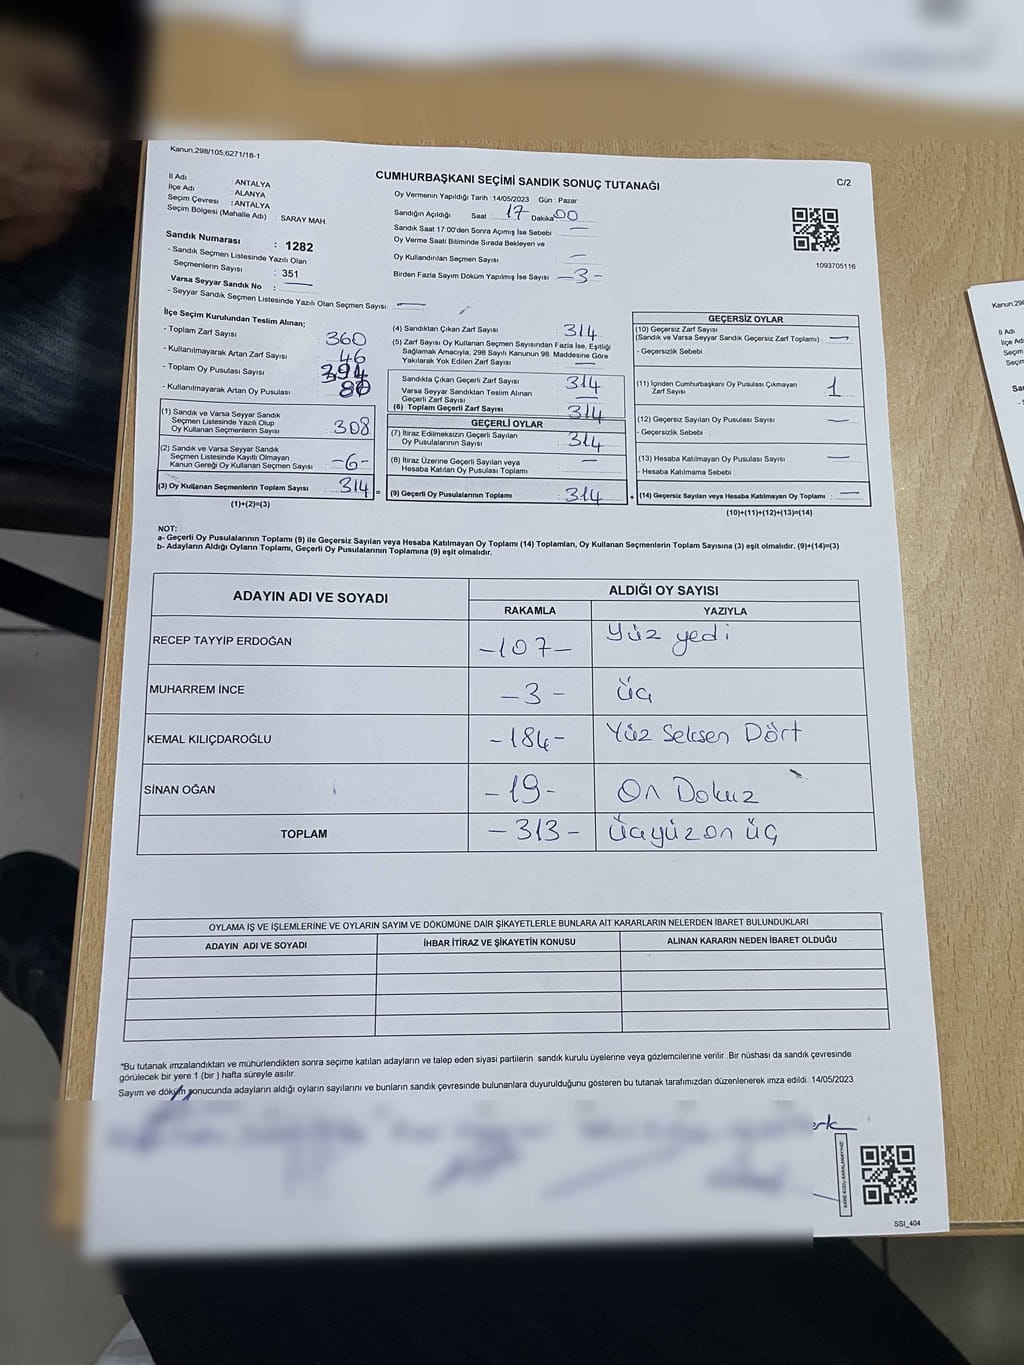 Kanun;298/105;6271/18-1
CUMHURBAŞKANI SEÇİMİ SANDIK SONUÇ TUTANAĞI
C/2
İl Adı : ANTALYA
İlçe Adı : ALANYA
Seçim Çevresi : ANTALYA
Seçim Bölgesi (Mahalle Adı) : SARAY MAH
Sandık Numarası : 1282
- Sandık Seçmen Listesinde Yazılı Olan
Seçmenlerin Sayısı : 351
Varsa Seyyar Sandık No : —
- Seyyar Sandık Seçmen Listesinde Yazılı Olan Seçmen Sayısı: —
Oy Vermenin Yapıldığı Tarih :14/05/2023 Gün : Pazar
Sandığın Açıldığı Saat : 17 Dakika 00
Sandık Saat 17:00'den Sonra Açımış İse Sebebi : —
Oy Verme Saati Bitiminde Sırada Bekleyen ve
Oy Kullandırılan Seçmen Sayısı : —
Birden Fazla Sayım Döküm Yapılmış İse Sayısı : -3-
1093705116
İlçe Seçim Kurulundan Teslim Alınan;
- Toplam Zarf Sayısı : 360
- Kullanılmayarak Artan Zarf Sayısı : 46
- Toplam Oy Pusulası Sayısı : 394
- Kullanılmayarak Artan Oy Pusulası : 80
(1) Sandık ve Varsa Seyyar Sandık
Seçmen Listesinde Yazılı Olup
Oy Kullanan Seçmenlerin Sayısı : 308
(2) Sandık ve Varsa Seyyar Sandık
Seçmen Listesinde Kayıtlı Olmayan
Kanun Gereği Oy Kullanan Seçmen Sayısı : -6-
(3) Oy Kullanan Seçmenlerin Toplam Sayısı : 314 =
(1)+(2)=(3)
(4) Sandıktan Çıkan Zarf Sayısı : 314
(5) Zarf Sayısı Oy Kullanan Seçmen Sayısından Fazla İse, Eşitliği
Sağlamak Amacıyla, 298 Sayılı Kanunun 98. Maddesine Göre
Yakılarak Yok Edilen Zarf Sayısı : —
Sandıkta Çıkan Geçerli Zarf Sayısı : 314
Varsa Seyyar Sandıktan Teslim Alınan
Geçerli Zarf Sayısı : —
(6) Toplam Geçerli Zarf Sayısı : 314
GEÇERLİ OYLAR
(7) İtiraz Edilmeksizin Geçerli Sayılan
Oy Pusulasının Sayısı : 314
(8) İtiraz Üzerine Geçerli Sayılan veya
Hesaba Katılan Oy Pusulası Toplamı : —
(9) Geçerli Oy Pusulalarının Toplamı : 314 +
GEÇERSİZ OYLAR
(10) Geçersiz Zarf Sayısı
(Sandık ve Varsa Seyyar Sandık Geçersiz Zarf Toplamı) : —
- Geçersizlik Sebebi :
(11) İçinden Cumhurbaşkanı Oy Pusulası Çıkmayan
Zarf Sayısı : 1
(12) Geçersiz Sayılan Oy Pusulası Sayısı : —
- Geçersizlik Sebebi :
(13) Hesaba Katılmayan Oy Pusulası Sayısı : —
- Hesaba Katılmama Sebebi :
(14) Geçersiz Sayılan veya Hesaba Katılmayan Oy Toplamı : —
(10)+(11)+(12)+(13)=(14)
NOT:
a- Geçerli Oy Pusulalarının Toplamı (9) ile Geçersiz Sayılan veya Hesaba Katılmayan Oy Toplamı (14) Toplamları, Oy Kullanan Seçmenlerin Toplam Sayısına (3) eşit olmalıdır. (9)+(14)=(3)
b- Adayların Aldığı Oyların Toplamı, Geçerli Oy Pusulalarının Toplamına (9) eşit olmalıdır.
ADAYIN ADI VE SOYADI ALDIĞI OY SAYISI
RAKAMLA YAZIYLA
RECEP TAYYİP ERDOĞAN -107- Yüz yedi
MUHARREM İNCE -3- üç
KEMAL KILIÇDAROĞLU -184- Yüz Seksen Dört
SİNAN OĞAN -19- On Dokuz
TOPLAM -313- üçyüz on üç
OYLAMA İŞ VE İŞLEMLERİNE VE OYLARIN SAYIM VE DÖKÜMÜNE DAİR ŞİKAYETLERLE BUNLARA AİT KARARLARIN NELERDEN İBARET BULUNDUKLARI
ADAYIN ADI VE SOYADI İHBAR İTİRAZ VE ŞİKAYETİN KONUSU ALINAN KARARIN NEDEN İBARET OLDUĞU
*Bu tutanak imzalandıktan ve mühürlendikten sonra seçime katılan adayların ve talep eden siyasi partilerin sandık kurulu üyelerine veya gözlemcilerine verilir .Bir nüshası da sandık çevresinde
görülecek bir yere 1 (bir ) hafta süreyle asılır.
Sayım ve döküm sonucunda adayların aldığı oyların sayılarını ve bunların sandık çevresinde bulunanlara duyurulduğunu gösteren bu tutanak tarafımızdan düzenlenerek imza edildi. 14/05/2023
KARE KODU KARALAMAYINIZ!
SSI_404
Kanun;298
İl Adı
İlçe Adı